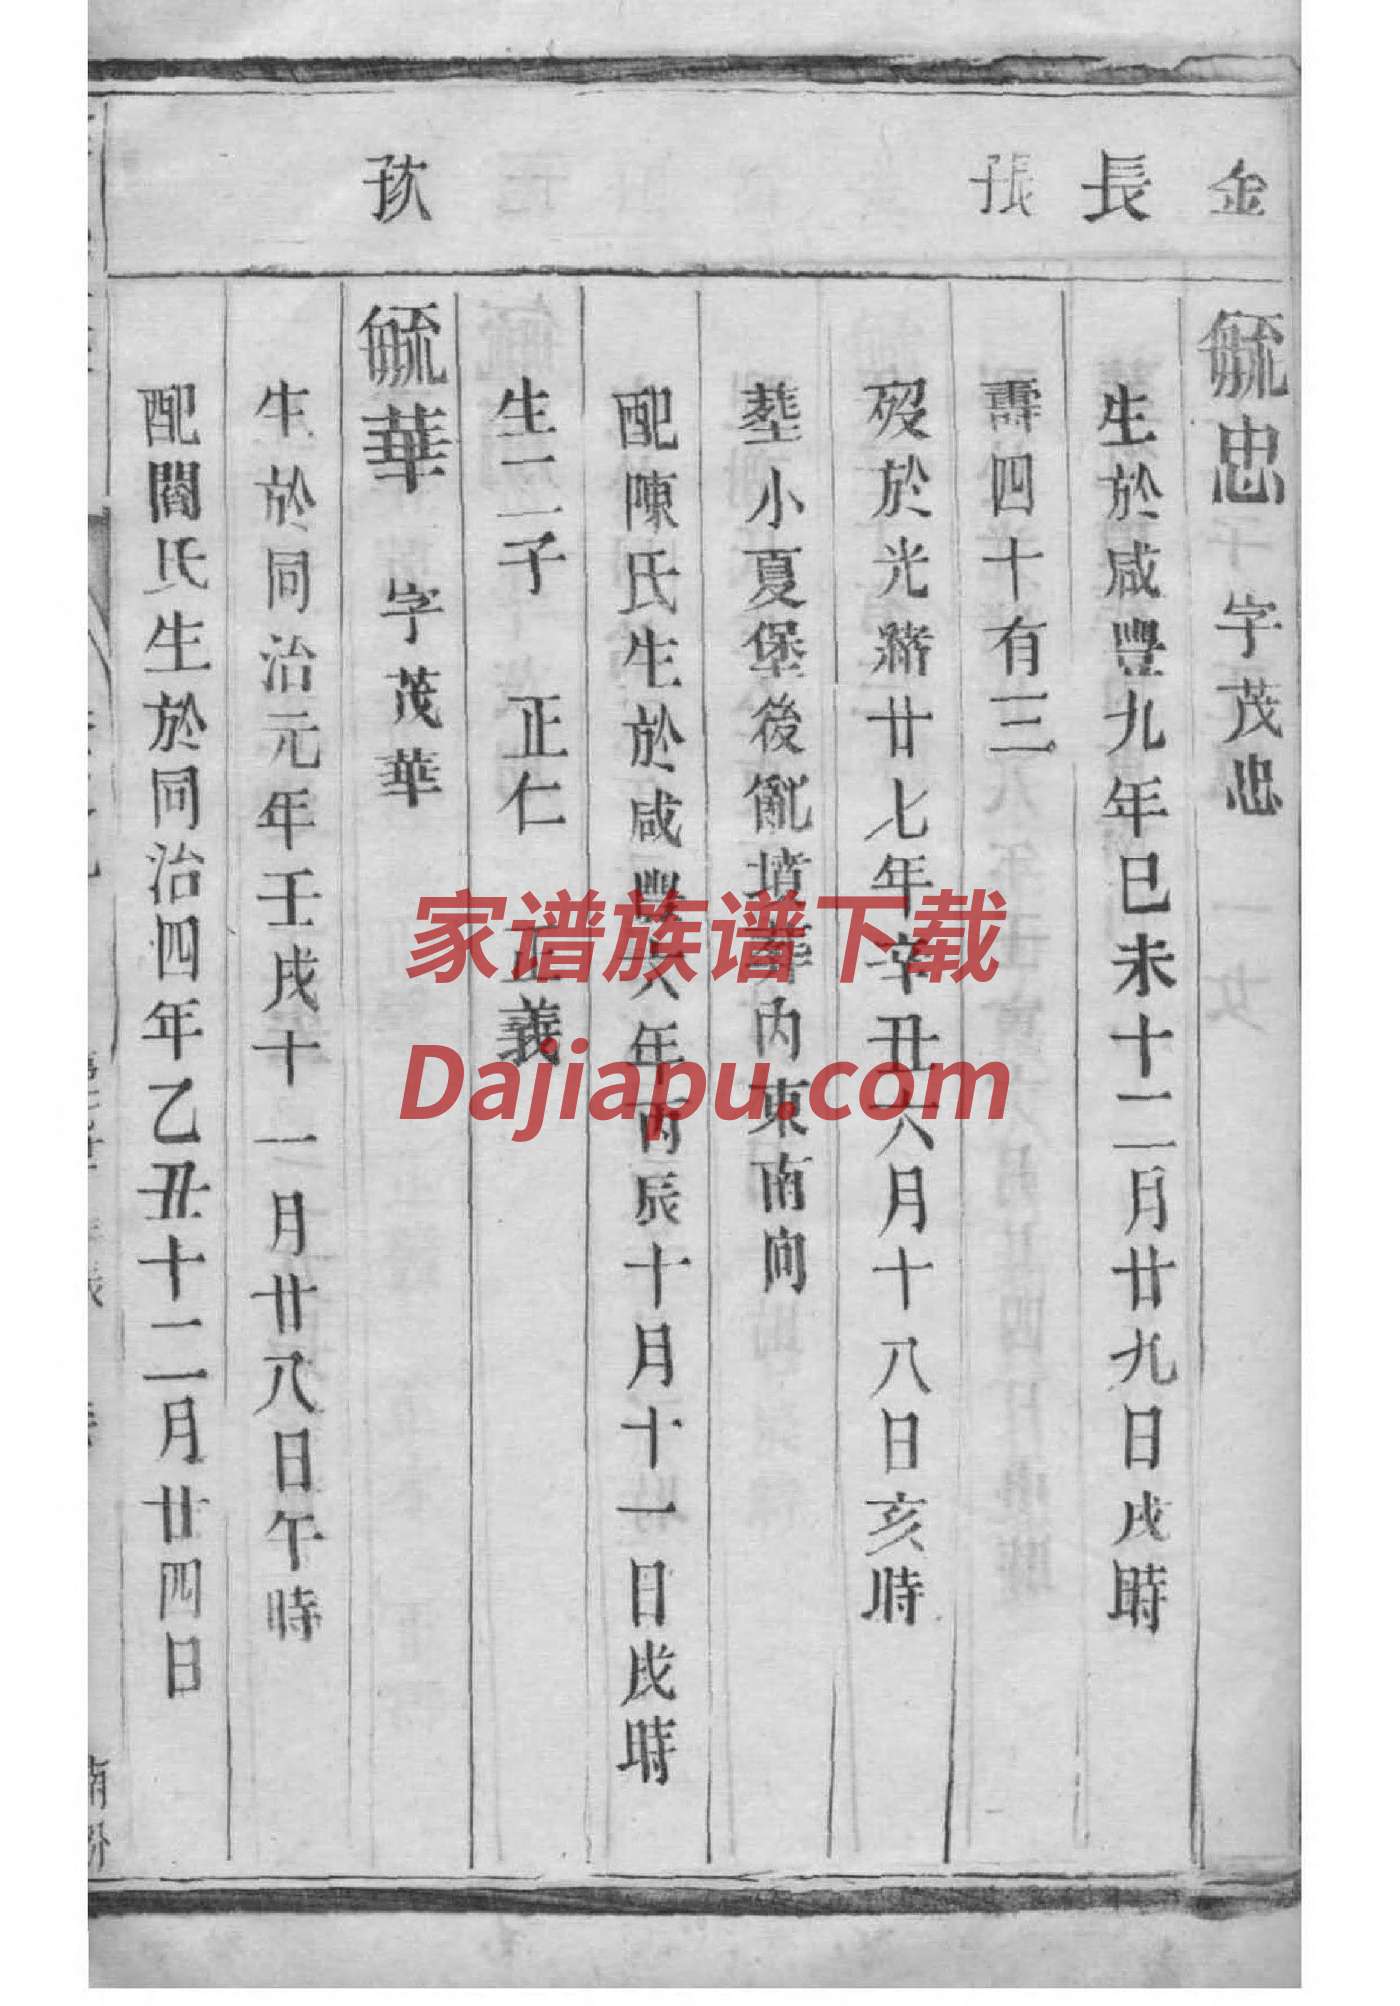 金
長
張
次
毓忠 字茂忠
生於咸豐九年已未十二月廿九日戌時
壽四十有三
歿於光緒廿七年辛丑六月十八日亥時
塟小夏堡後亂墳葬內東南向
配陳氏生於咸豐六年丙辰十月十一日戌時
生二子 正仁 正義
毓華 字茂華
生於同治元年壬戌十一月廿八日午時
配閻氏生於同治四年乙丑十二月廿四日
家谱族谱下载
Dajiapu.com